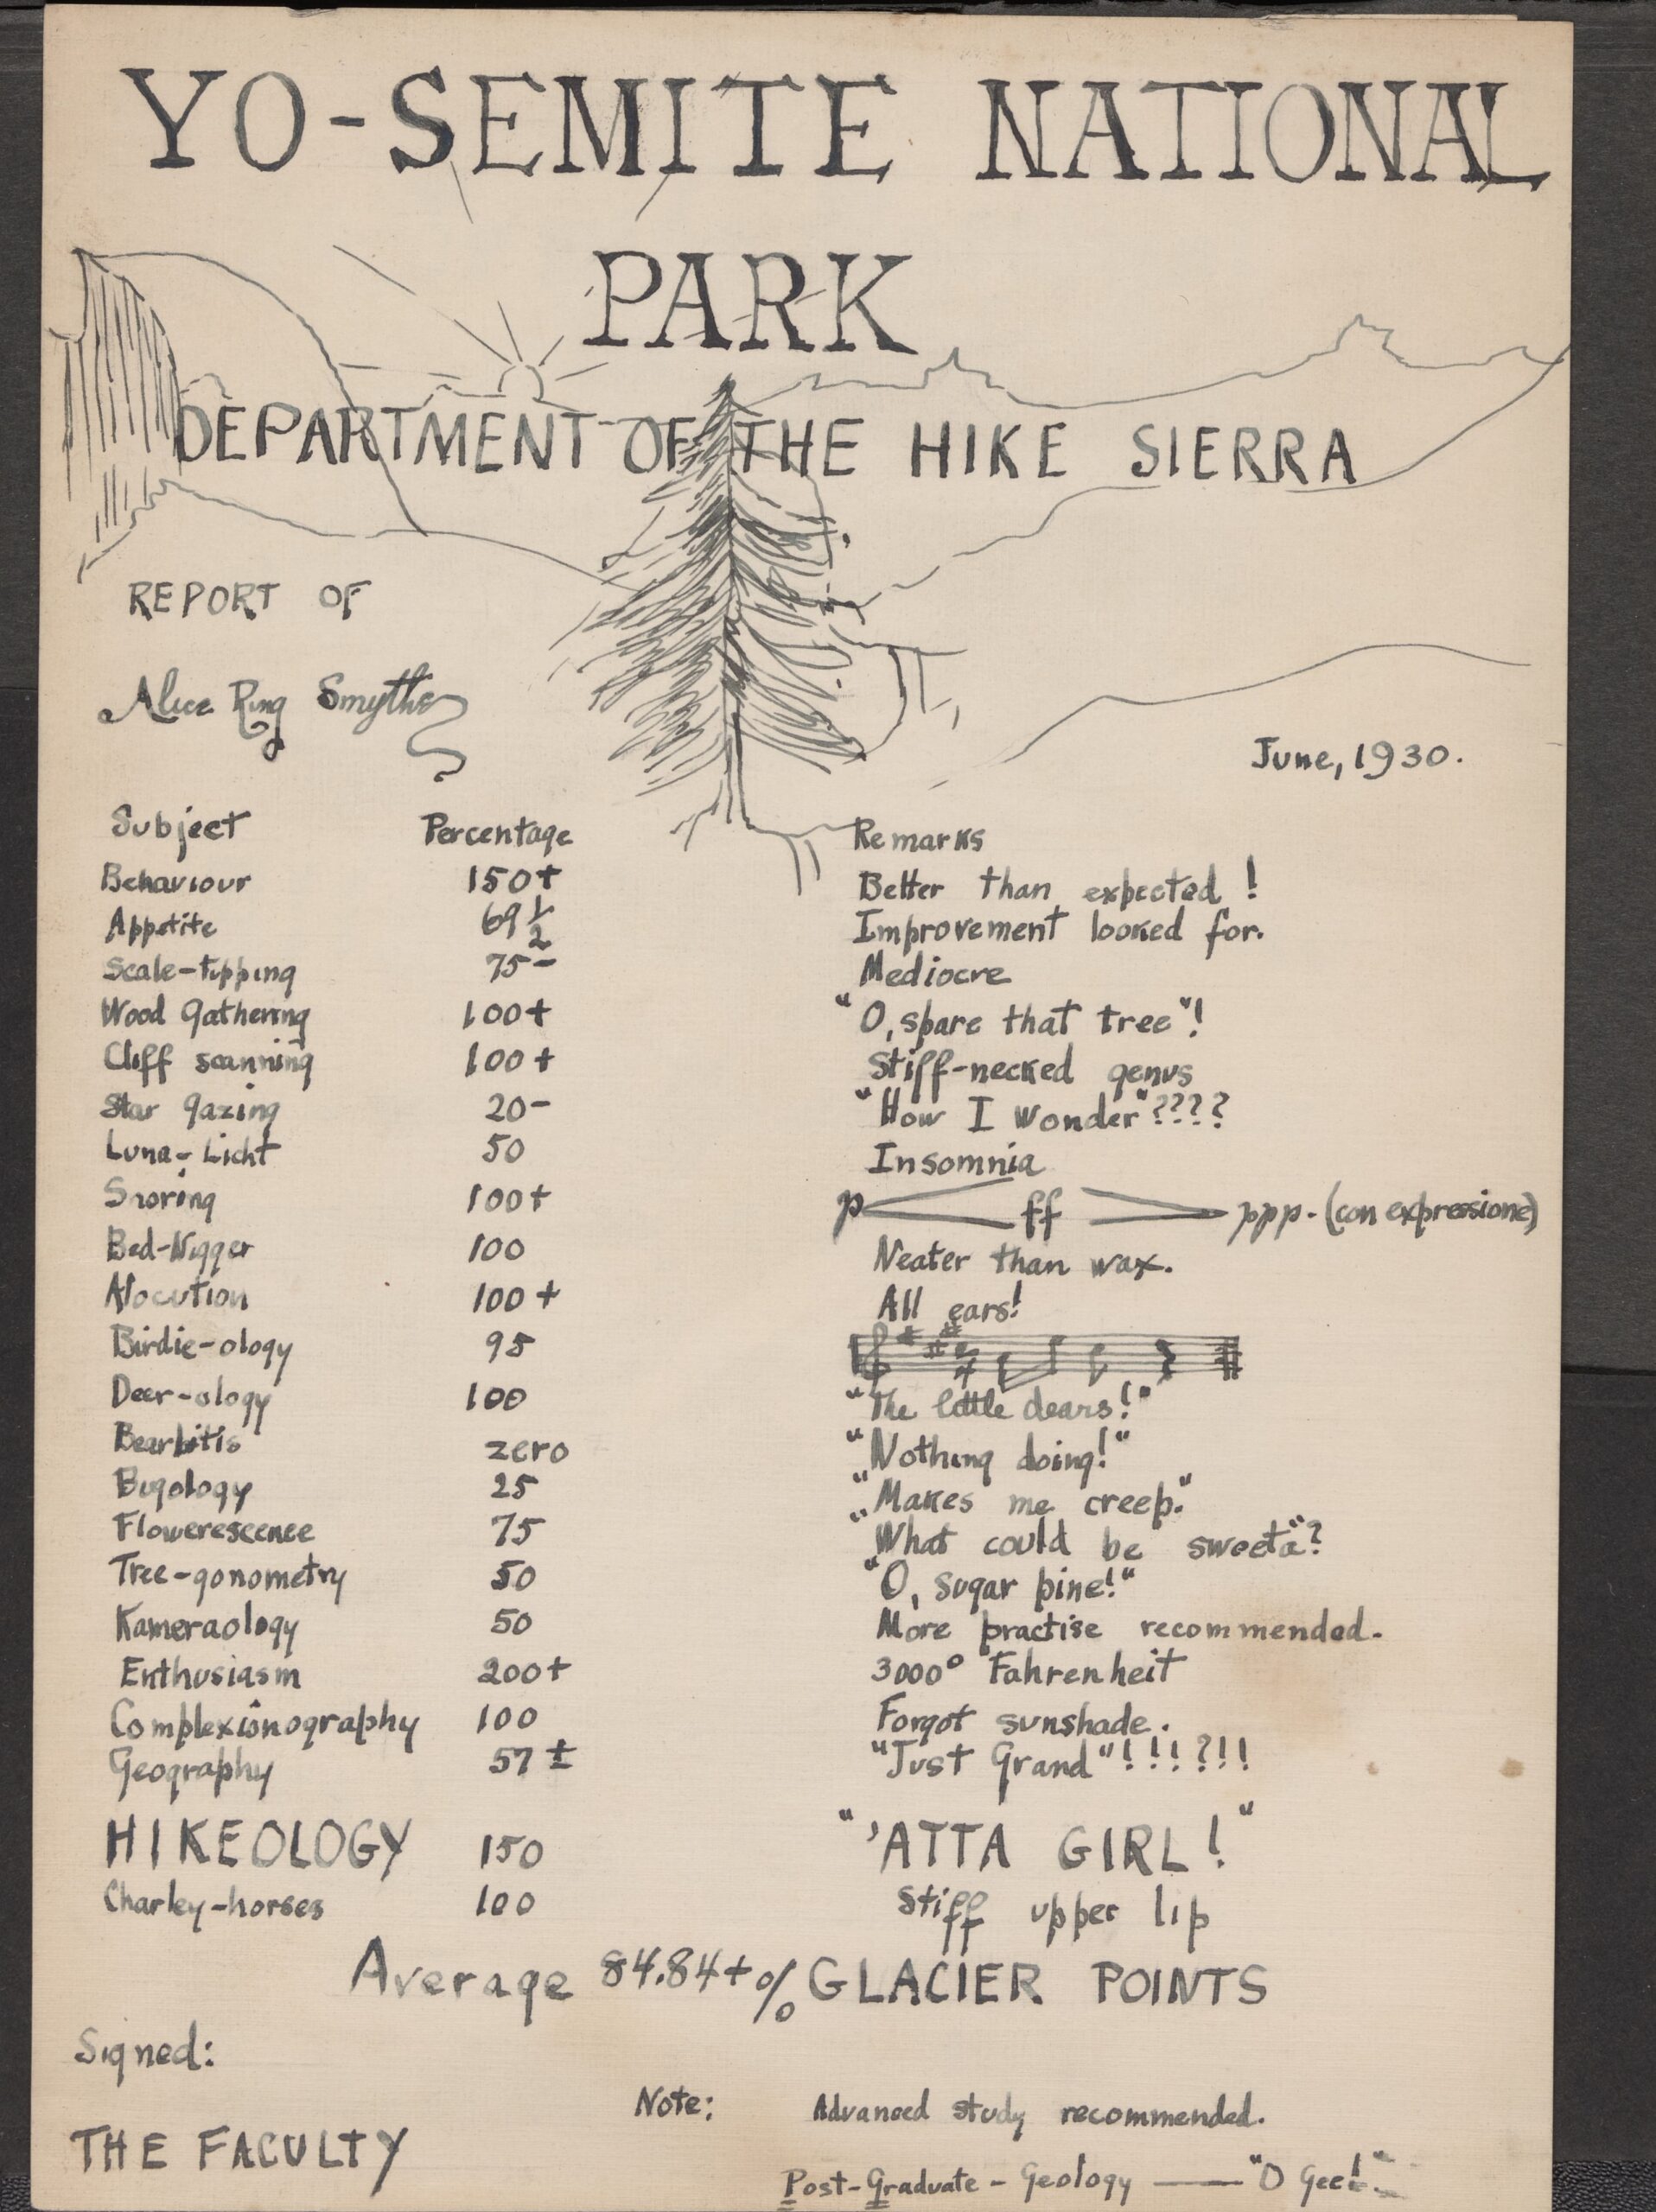 YO-SEMITE NATIONAL
PARK
DEPARTMENT OF THE HIKE SIERRA
REPORT OF
Alice Ring Smythe
June, 1930.
Subject Percentage Remarks
Behaviour 150+ Better than expected!
Appetite 69 1/2 Improvement looked for.
Scale-tipping 75- Mediocre
Wood gathering 100+ "O, spare that tree"!
Cliff scanning 100+ Stiff-necked genus
Star gazing 20- "How I wonder"????
Luna-Licht 50 Insomnia
Snoring 100+ p < ff > ppp. (con expressione)
Bed-Nigger 100 Neater than wax.
Alocution 100+ All ears!
Birdie-ology 95
Deer-ology 100 "The little dears!"
Bearbitis zero "Nothing doing!"
Bugology 25 "Makes me creep."
Flowerescence 75 "What could be sweeta"?
Tree-gonometry 50 "O, sugar pine!"
Kameraology 50 More practise recommended.
Enthusiasm 200+ 3000° Fahrenheit
Complexionography 100 Forgot sunshade.
Geography 57± "Just Grand"!!!?!!
HIKEOLOGY 150 "'ATTA GIRL!"
Charley-horses 100 Stiff upper lip
Average 84.84+% GLACIER POINTS
Signed:
Note: Advanced study recommended.
THE FACULTY
Post-Graduate - Geology — "O Gee!"